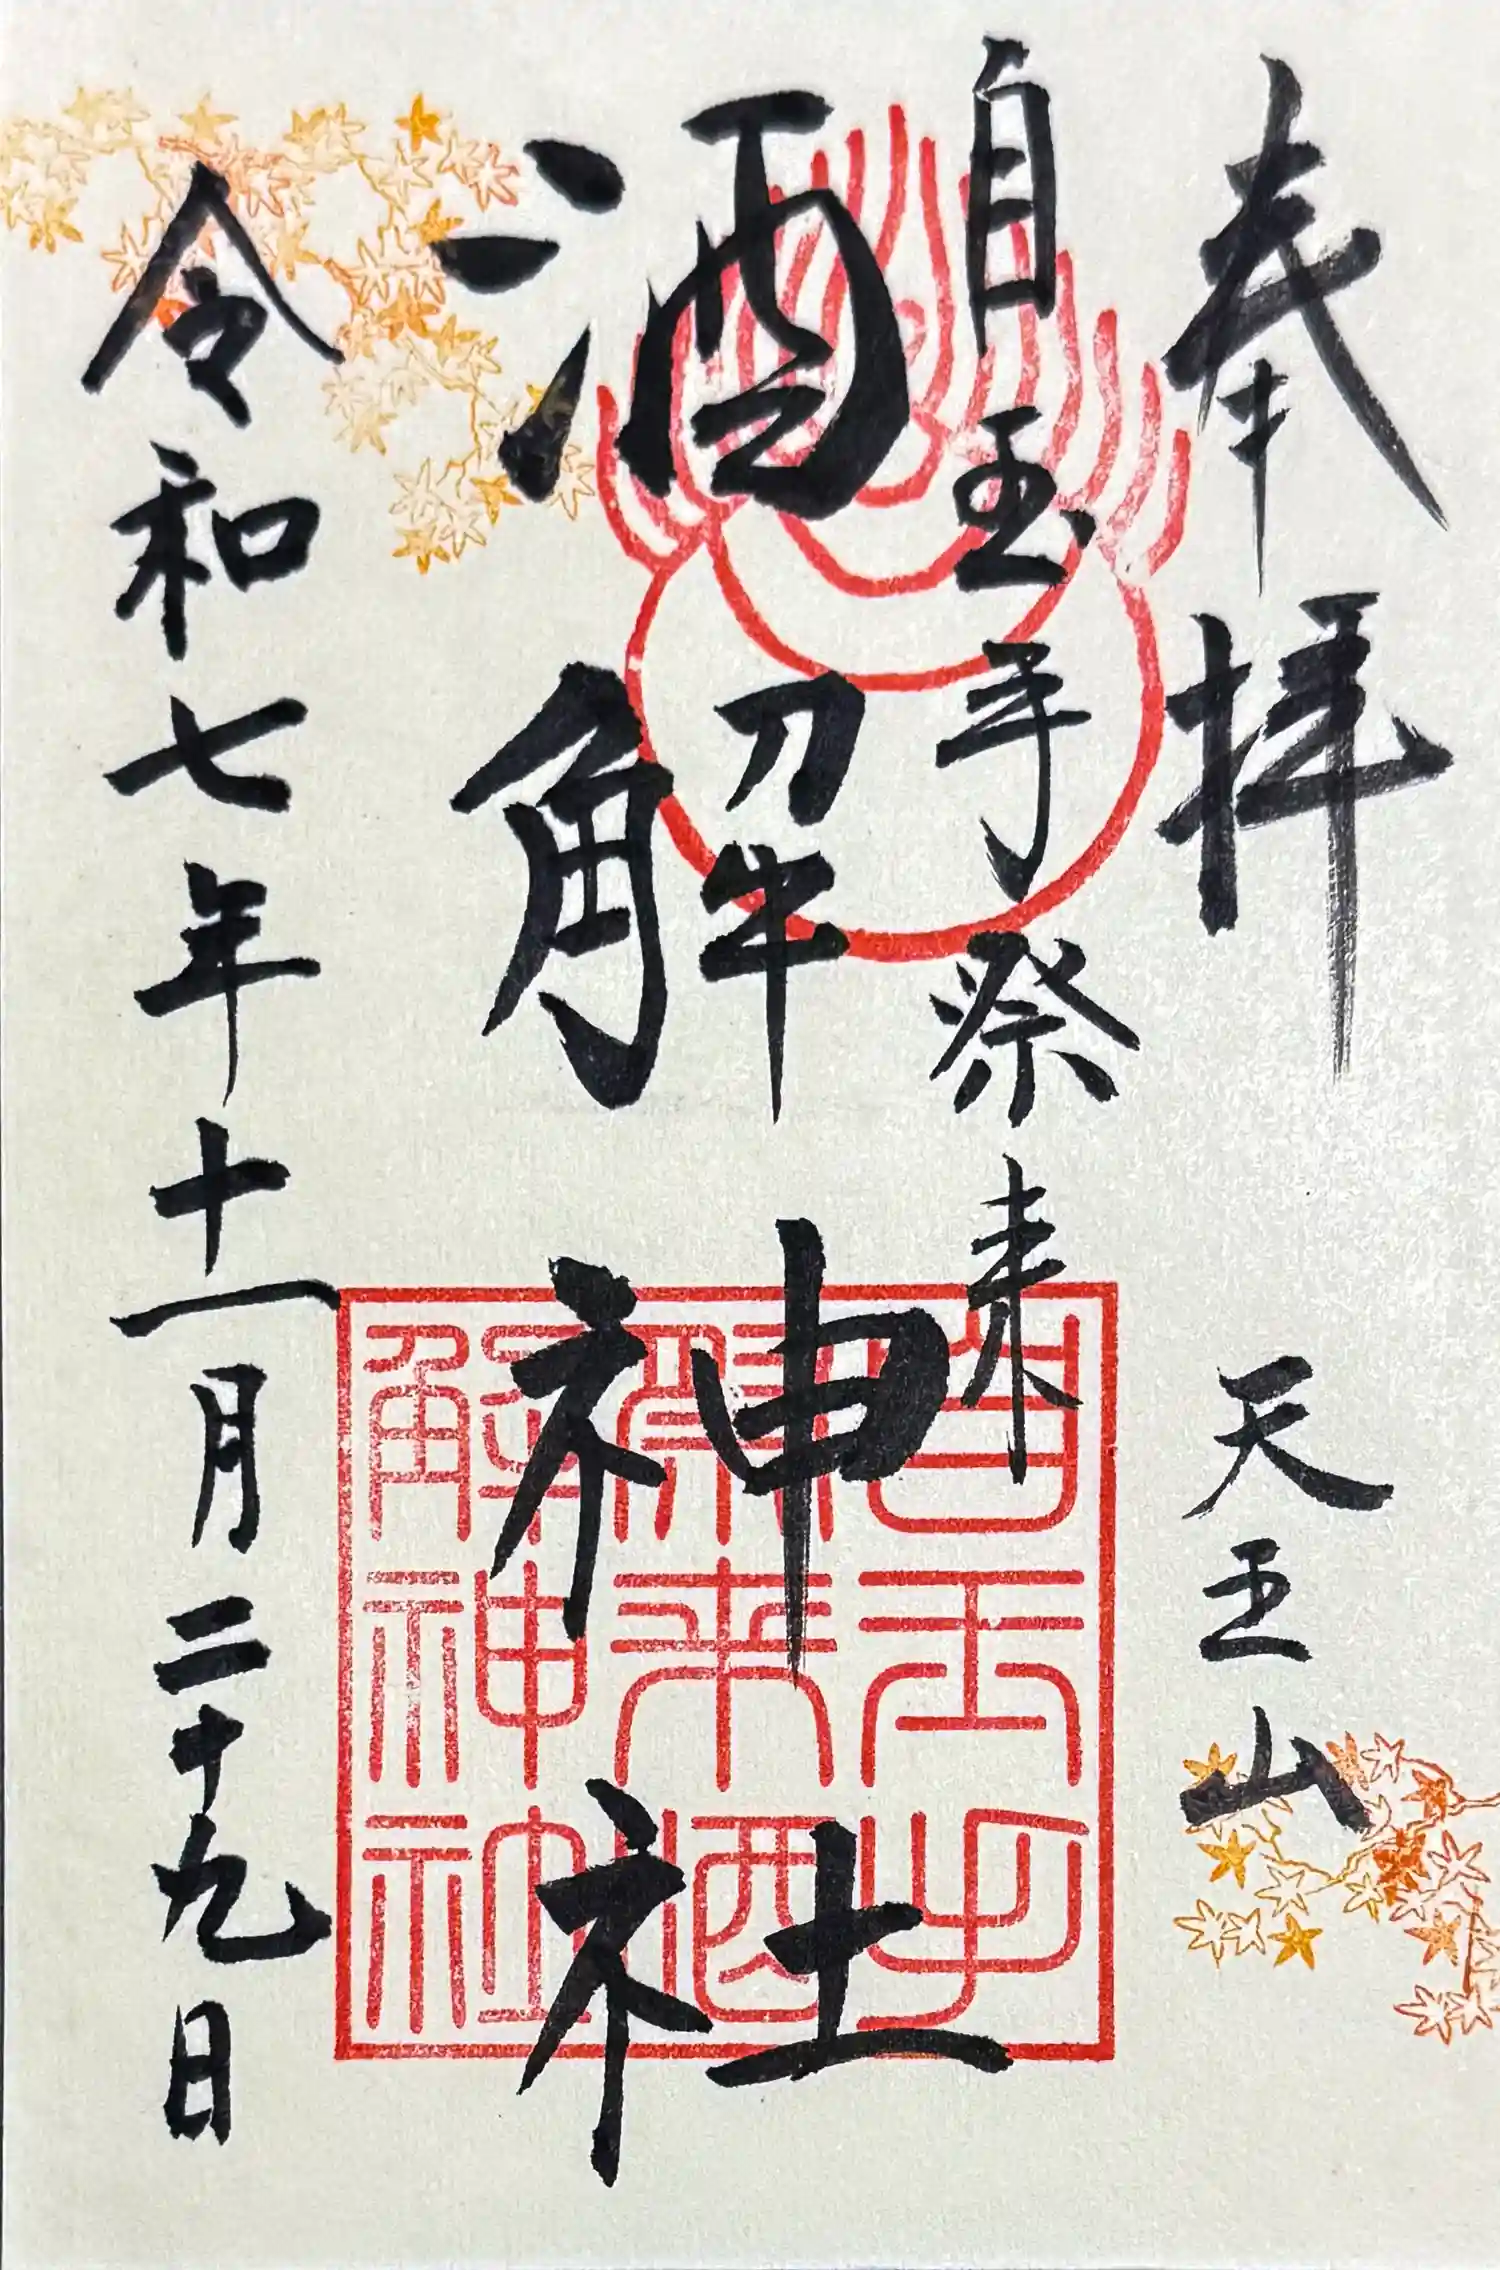 奉拝 天王山
自玉手祭来
酒解神社
令和七年十一月二十九日
自玉手
祭来酒
解神社